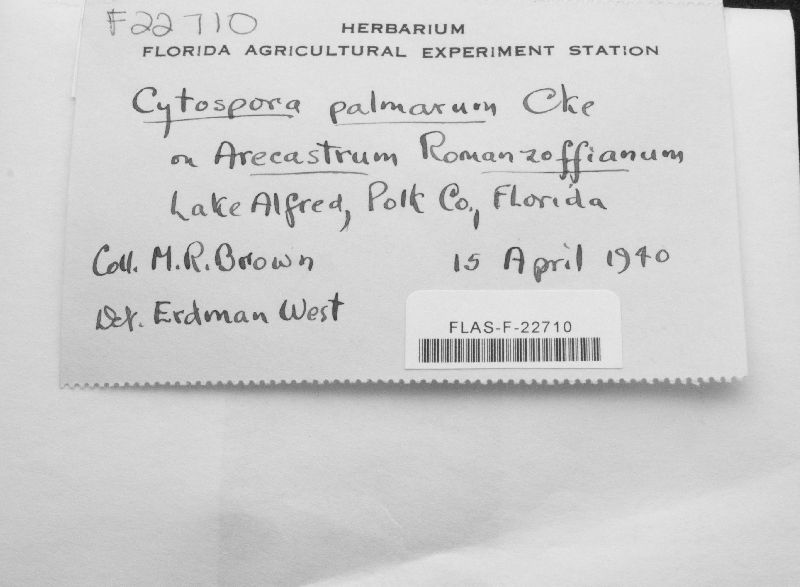 F22710
HERBARIUM
FLORIDA AGRICULTURAL EXPERIMENT STATION
Cytospora palmarum Cke
on Arecastrum Romanzoffianum
Lake Alfred, Polk Co., Florida
Coll. M.R. Brown 15 April 1940
Det. Erdman West
FLAS-F-22710